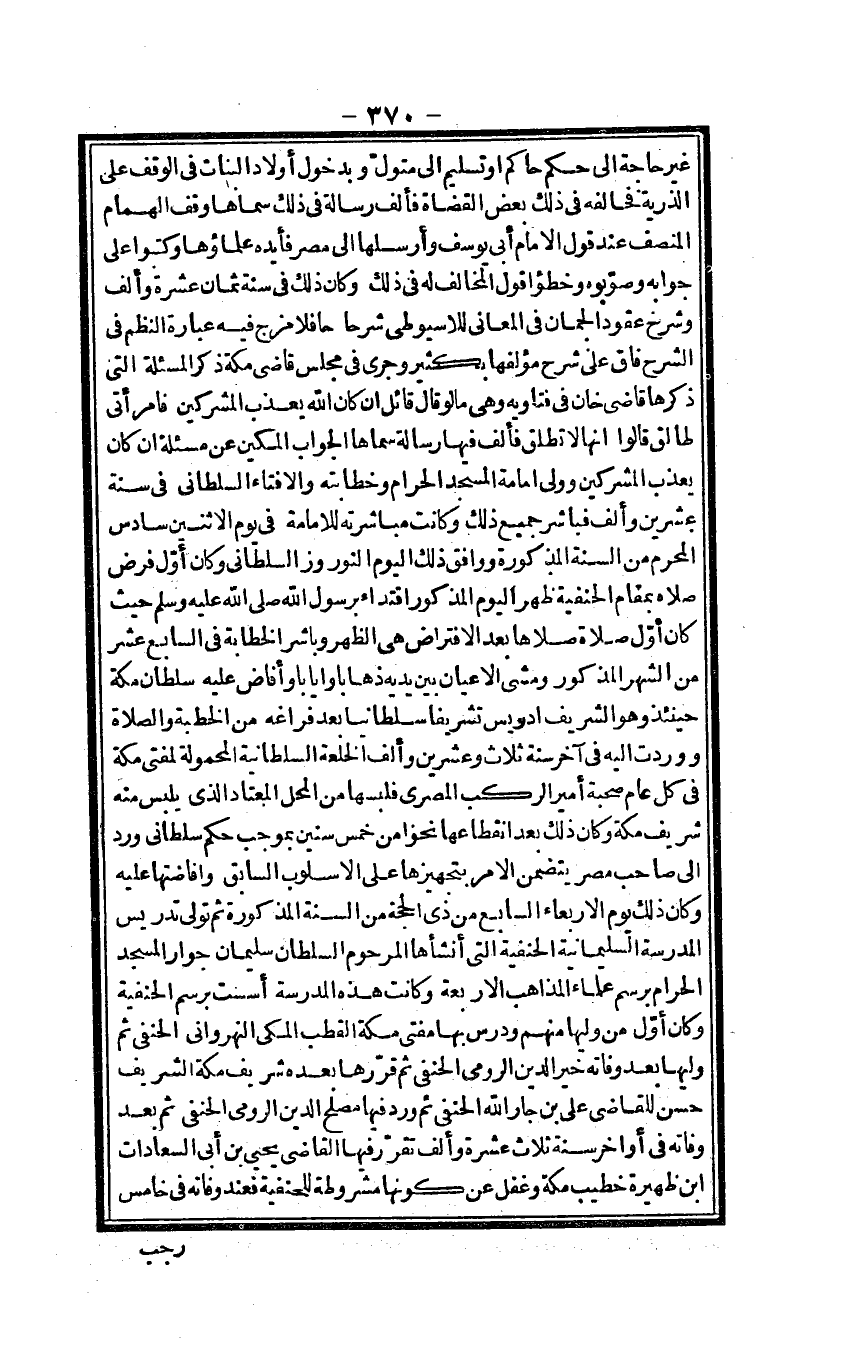 - ٣٧٠ -
غير حاجة الى حكم حاكم او تسليم الى متول وبدخول أولاد البنات فى الوقف على
الذرية فخالفه فى ذلك بعض القضاة فألف رسالة فى ذلك سماها وقف الهمام
المنصف عند قول الامام أبى يوسف وأرسلها الى مصر فأيده علماؤها وكتبوا على
جوابه وصوّبوه وخطؤا قول المخالف له فى ذلك وكان ذلك فى سنة ثمان عشرة وألف
وشرح عقود الجمان فى المعانى للاسيوطى شرحا حافلا مزج فيه عبارة النظم فى
الشرح فاق على شرح مؤلفها بكثير وجرى فى مجلس قاضى مكة ذكر المسئلة التى
ذكرها قاضى خان فى فتاويه وهى مالو قال قائل ان كان الله يعذب المشركين فامرأتى
طالق قالوا انها لا تطلق فألف فيها رسالة سماها الجواب المكين عن مسئلة ان كان
يعذب المشركين وولى امامة المسجد الحرام وخطابته والافتاء السلطانى فى سنة
عشرين وألف فباشر جميع ذلك وكانت مباشرته للامامة فى يوم الاثنين سادس
المحرم من السنة المذكورة ووافق ذلك اليوم النوروز السلطانى وكان أوّل فرض
صلاه بمقام الحنفية ظهر اليوم المذكور اقتداء برسول الله صلى الله عليه وسلم حيث
كان أوّل صلاة صلاها بعد الافتراض هى الظهر وباشر الخطابة فى السابع عشر
من الشهر المذكور ومشى الاعيان بين يديه ذهابا وايابا وأفاض عليه سلطان مكة
حينئذ وهو الشريف ادريس تشريفا سلطانيا بعد فراغه من الخطبة والصلاة
ووردت اليه فى آخر سنة ثلاث وعشرين وألف الخلعة السلطانية المحمولة لمفتى مكة
فى كل عام صحبة أمير الركب المصرى فلبسها من المحل المعتاد الذى يلبس منه
شريف مكة وكان ذلك بعد انقطاعها نحوا من خمس سنين بموجب حكم سلطانى ورد
الى صاحب مصر يتضمن الامر بتجهيزها على الاسلوب السابق وافاضتها عليه
وكان ذلك يوم الاربعاء السابع من ذى الحجة من السنة المذكورة ثم تولى تدريس
المدرسة السليمانية الحنفية التى أنشأها المرحوم السلطان سليمان جوار المسجد
الحرام برسم علماء المذاهب الاربعة وكانت هذه المدرسة أسست برسم الحنفية
وكان أوّل من وليها منهم ودرس بها مفتى مكة القطب المكى النهروانى الحنفى ثم
وليها بعد وفاته خير الدين الرومى الحنفى ثم قرّرها بعده شريف مكة الشريف
حسن للقاضى على بن جار الله الحنفى ثم ورد فيها مصلح الدين الرومى الحنفى ثم بعد
وفاته فى أواخر سنة ثلاث عشرة وألف تقرّر فيها القاضى يحيى بن أبى السعادات
ابن ظهيرة خطيب مكة وغفل عن كونها مشروطة للحنفية فعند وفاته فى خامس
رجب